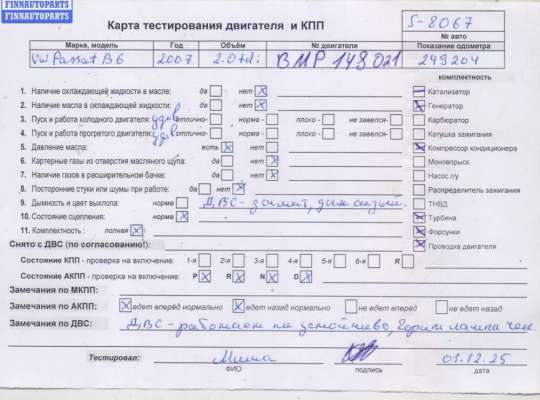 FINNAUTOPARTS
FINNAUTOPARTS
Карта тестирования двигателя и КПП
S-8067
№ авто
Марка, модель Год Объём № двигателя Показание одометра
VW Passat B6 2007 2.0 tdi BMP 148021 249204
комплектность
1. Наличие охлаждающей жидкости в масле: да нет X
2. Наличие масла в охлаждающей жидкости: да нет X
3. Пуск и работа холодного двигателя: удов отлично- норма - плохо - не завелся-
4. Пуск и работа прогретого двигателя: удов отлично- норма - плохо - не завелся-
5. Давление масла: есть X нет
6. Картерные газы из отверстия масляного щупа: да нет X
7. Наличие газов в расширительном бачке: да нет X
8. Посторонние стуки или шумы при работе: да нет X
9. Дымность и цвет выхлопа: норма ДВС- дымит, дым сизый.
10. Состояние сцепления: норма X
11. Комплектность : полная X :
Катализатор
Генератор
Карбюратор
Катушка зажигания
Компрессор кондиционера
Моновпрыск
Насос г/у
Распределитель зажигания
ТНВД
Турбина
Форсунки
Проводка двигателя
Снято с ДВС (по согласованию!):
Состояние КПП - проверка на включение: 1-я 2-я 3-я 4-я 5-я 6-я R
Состояние АКПП - проверка на включение: P X R X N X D X
Замечания по МКПП:
Замечания по АКПП: X едет вперёд нормально X едет назад нормально не едет вперёд не едет назад
Замечания по ДВС: ДВС-работает не устойчиво, горит лампа чек.
Тестировал: Миша 01.12.25
ФИО подпись дата